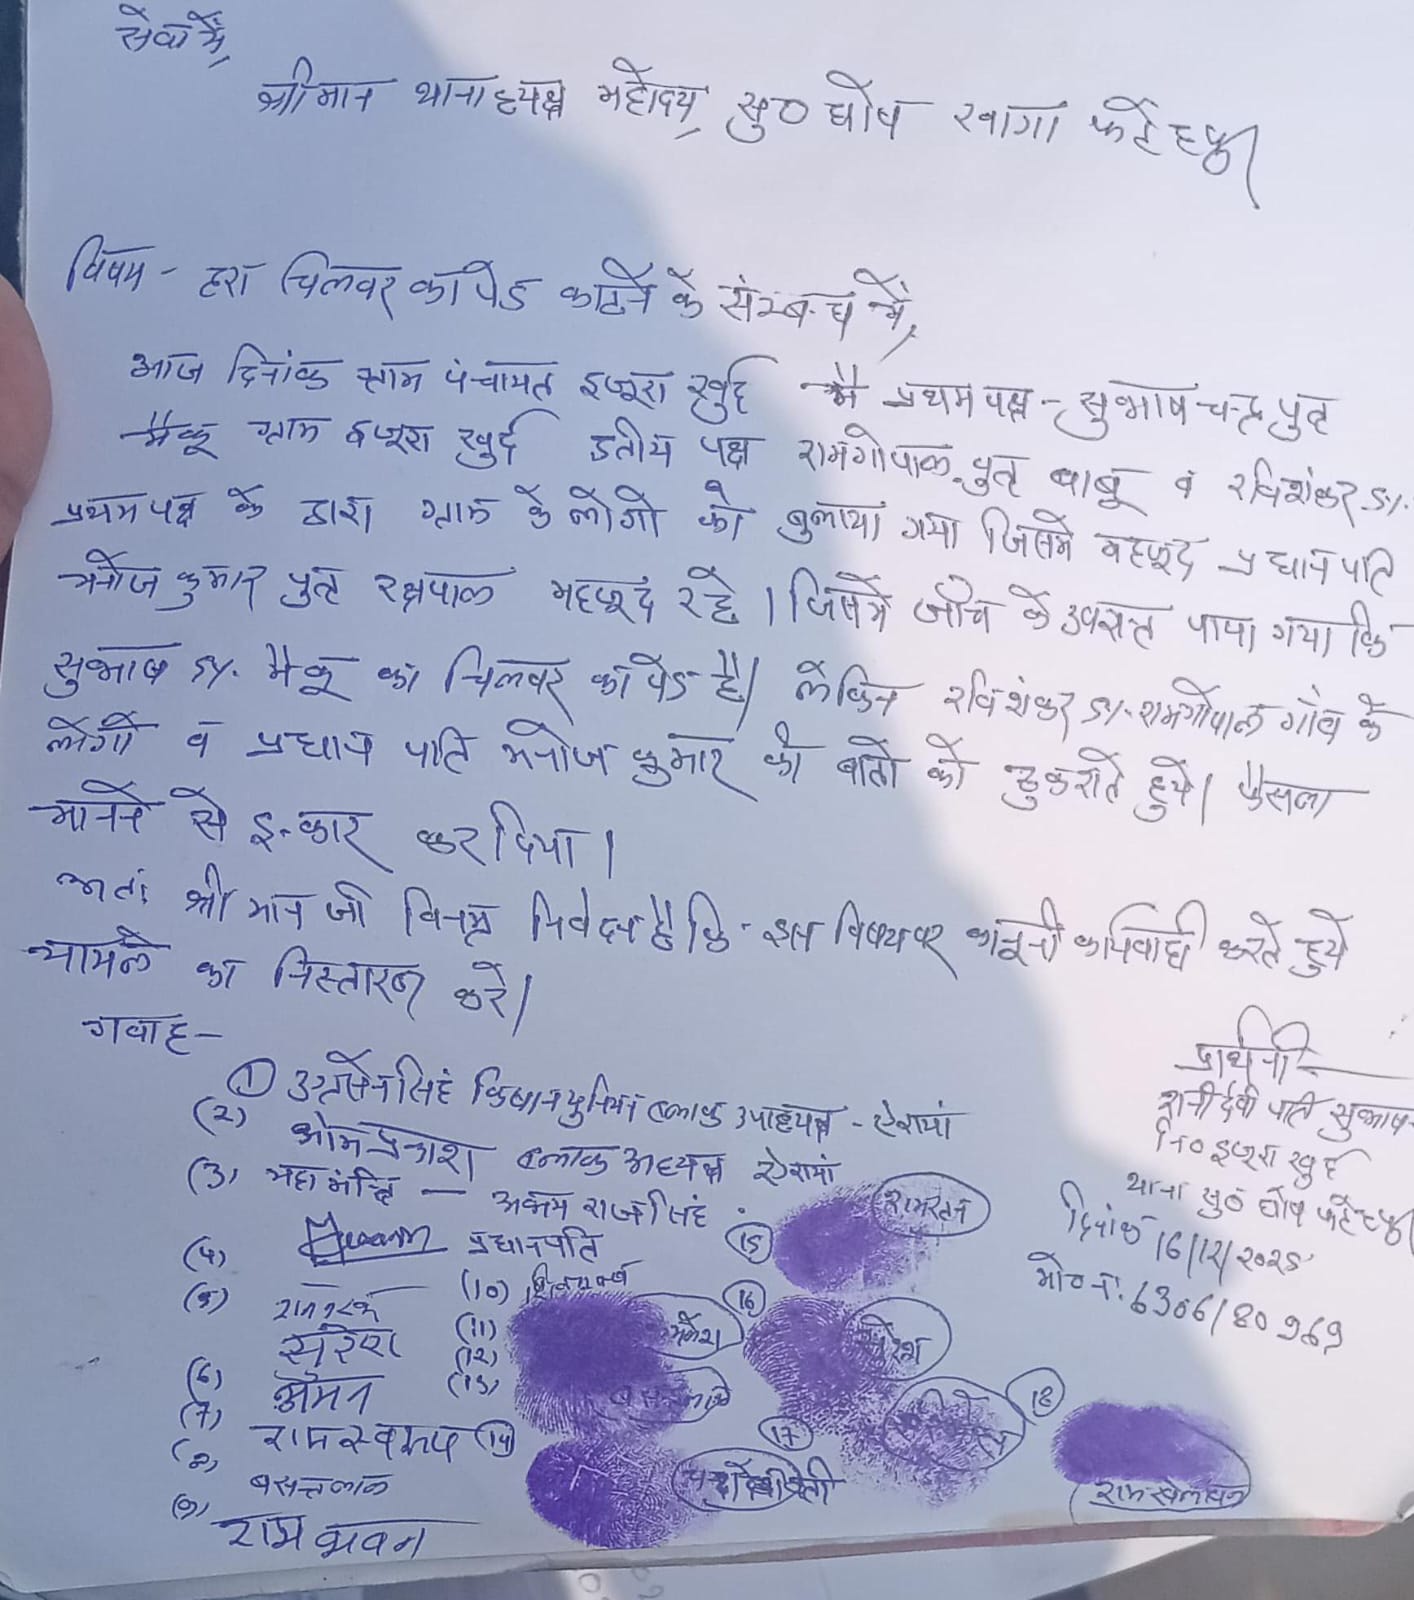 सेवा में,
श्रीमान थानाध्यक्ष महोदय, सु० घोष खागा फतेहपुर
विषय - हरा चिलवर का पेड काटने के संम्बन्ध में,
आज दिनांक ग्राम पंचायत इजूरा खुर्द में प्रथम पक्ष - सुभाष चन्द्र पुत्र
मैकू ग्राम इजूरा खुर्द द्वतीय पक्ष रामगोपाल पुत्र बाबू व रविशंकर S/.
प्रथम पक्ष के द्वारा ग्राम के लोगों को बुलाया गया जिसमे महजूद प्रधान पति
मनोज कुमार पुत्र रक्षपाल महजूद रहे। जिसमें जाँच के उपरान्त पाया गया कि
सुभाष S/. मैकू का चिलवर का पेड है। लेकिन रविशंकर S/. रामगोपाल गाँव के
लोगों व प्रधान पति मनोज कुमार की बातों को ठुकराते हुये। फैसला
मानने से इन्कार कर दिया।
अतः श्री मान जी विनम्र निवेदन है कि - इस विषय पर कानूनी कार्यवाही करते हुये
मामले का निस्तारण करे।
गवाह -
① उग्रसेन सिंह किसान यूनियन ब्लाक उपाध्यक्ष - ऐरायां
(2) ओम प्रकाश ब्लाक अध्यक्ष ऐरायां
(3) महामंत्रि - राज सिंह
(4) प्रधानपति
(5)
सुरेश
(6) अमन
(7) रामस्वरूप
(8) बसन्तलाल
(9) राम भवन
(10)
(11)
(12)
(13)
(14)
(15) रामरतन
(16) सुरेश
(17)
(18) राम खेलावन
प्रार्थनी
रानी देवी पति सुभाष
नि० इजूरा खुर्द
थाना सु० घोष फतेहपुर
दिनांक 16/12/२०२५
मो० नं. 6306180969